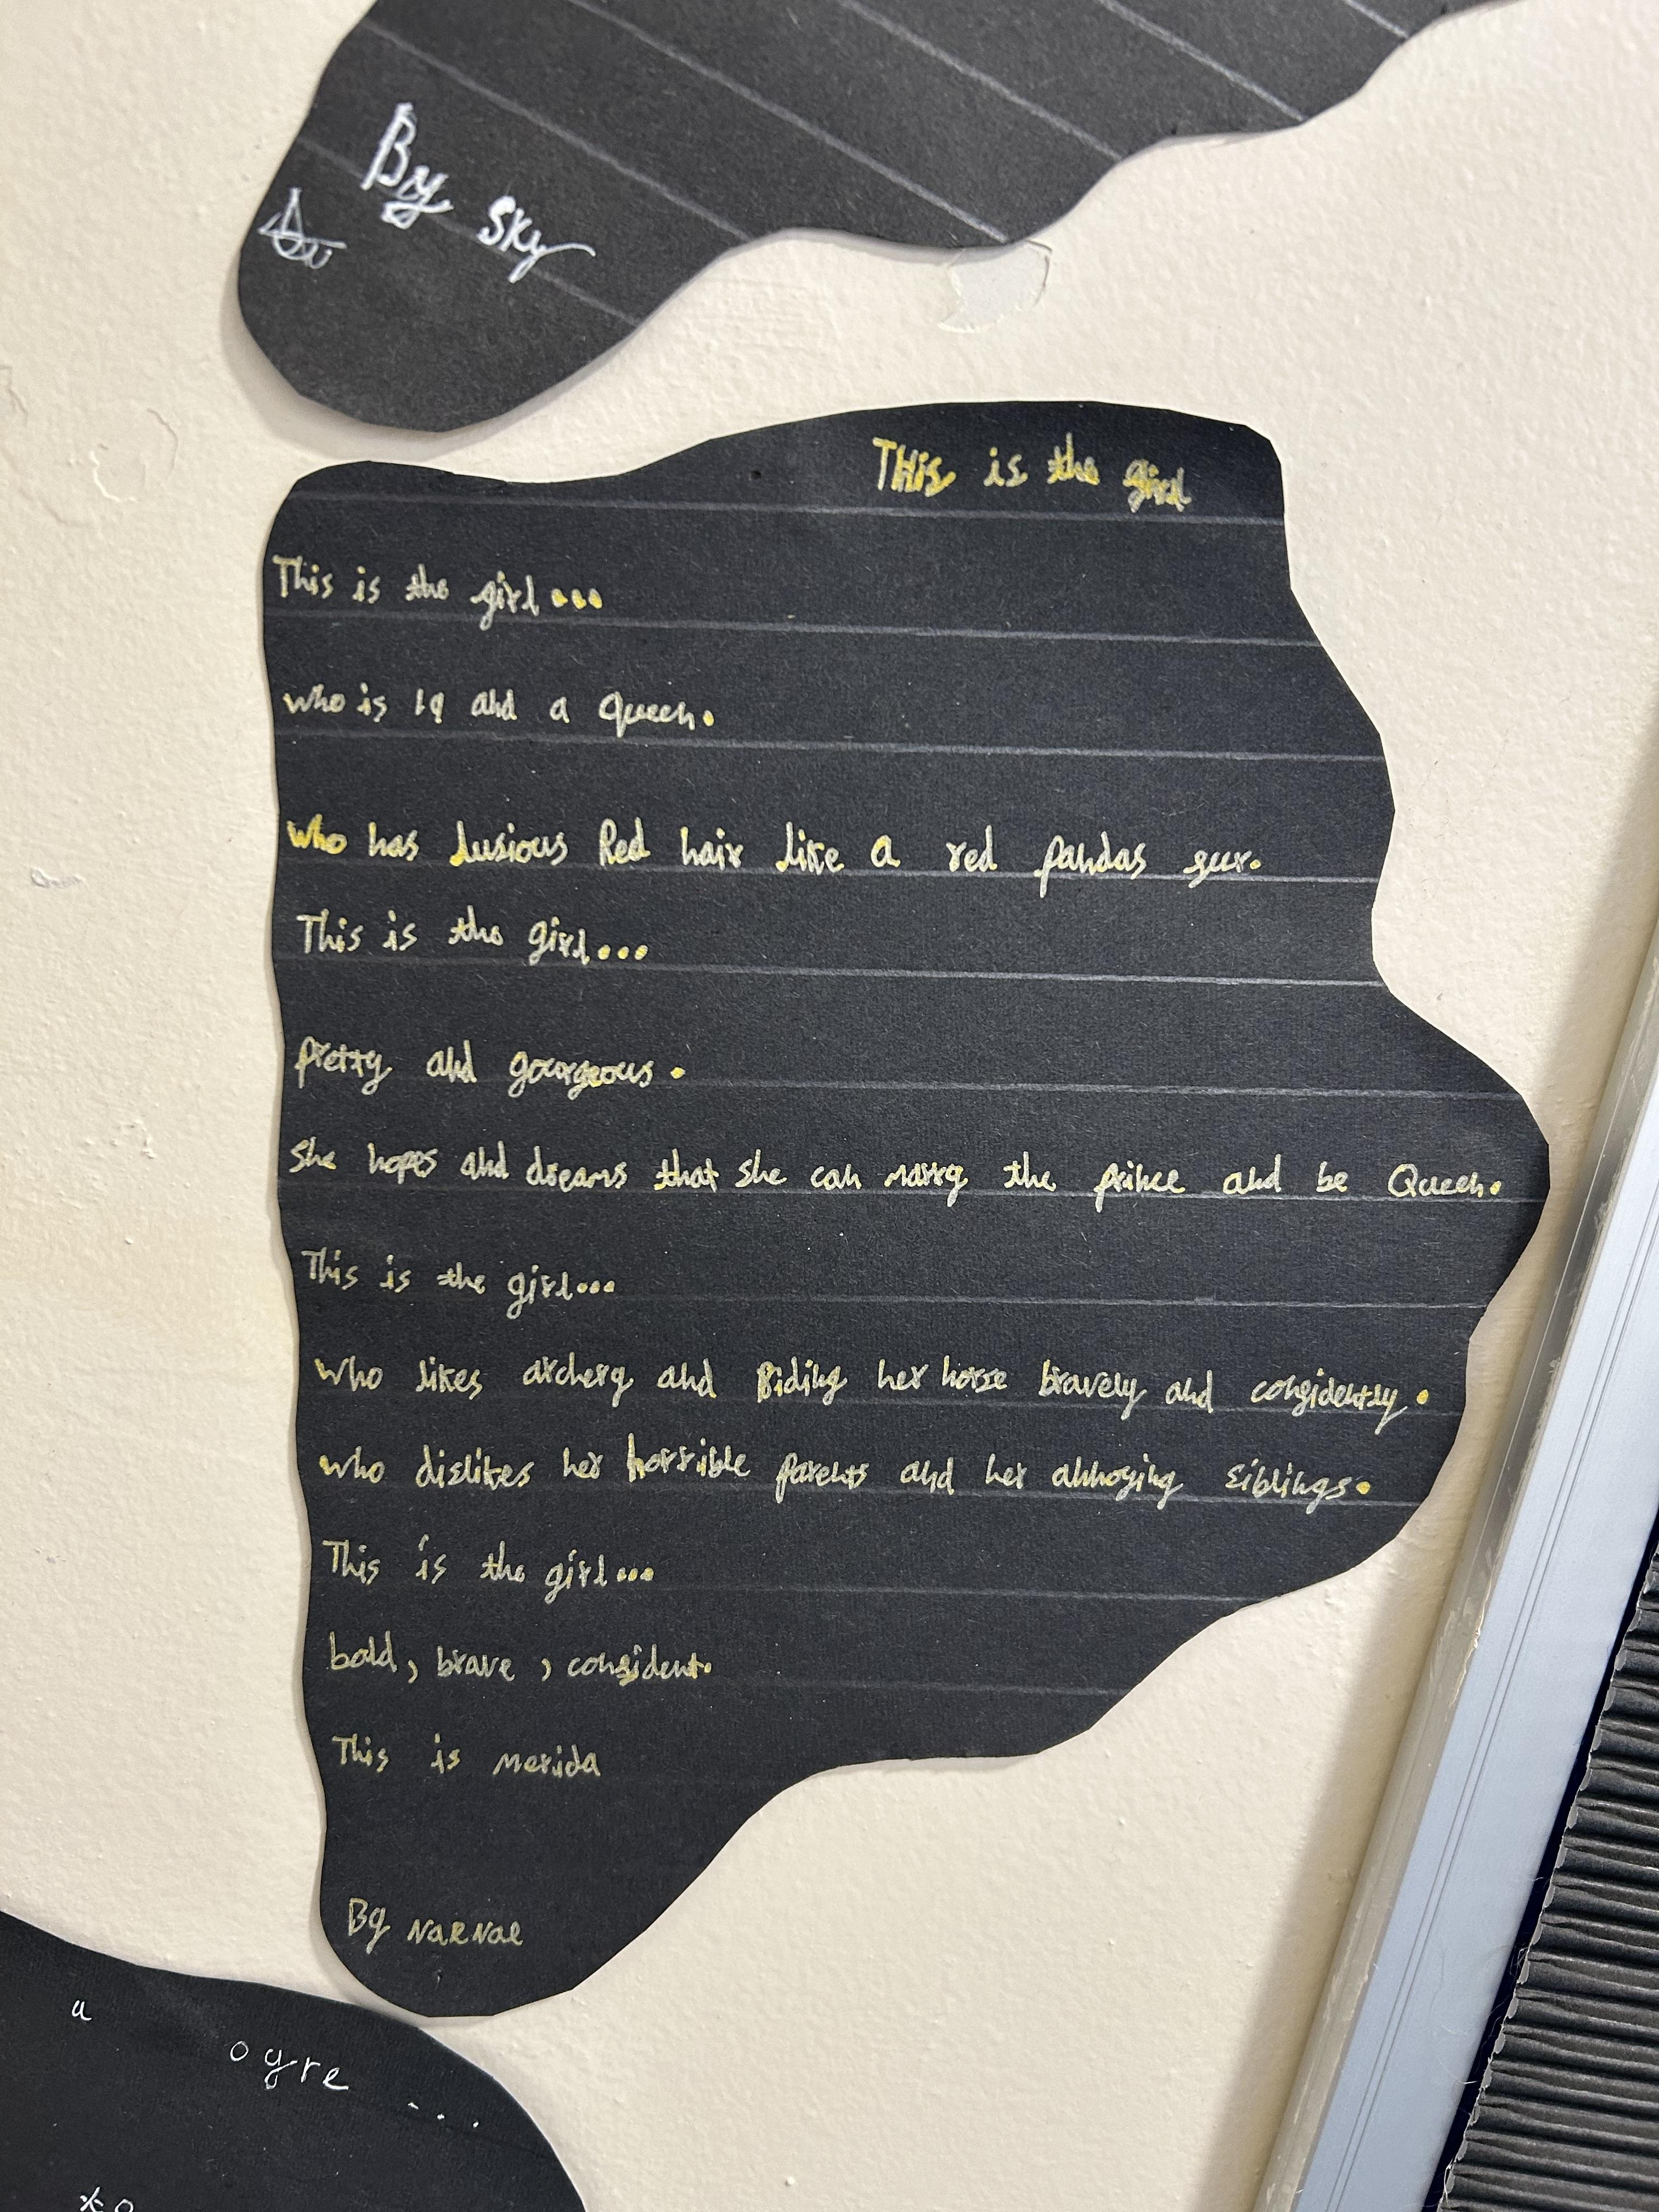 By Sky
THis is the girl
This is the girl...
who is 19 and a Queen.
who has lusious Red hair like a red pandas fur.
This is the girl...
pretty and gourgeous.
She hopes and dreams that she can marry the prince and be Queen.
This is the girl...
who likes archery and Riding her horse bravely and confidently.
who dislikes her horrible parents and her annoying siblings.
This is the girl...
bold, brave, confident.
This is merida
By NaeNae
a ogre ...
to